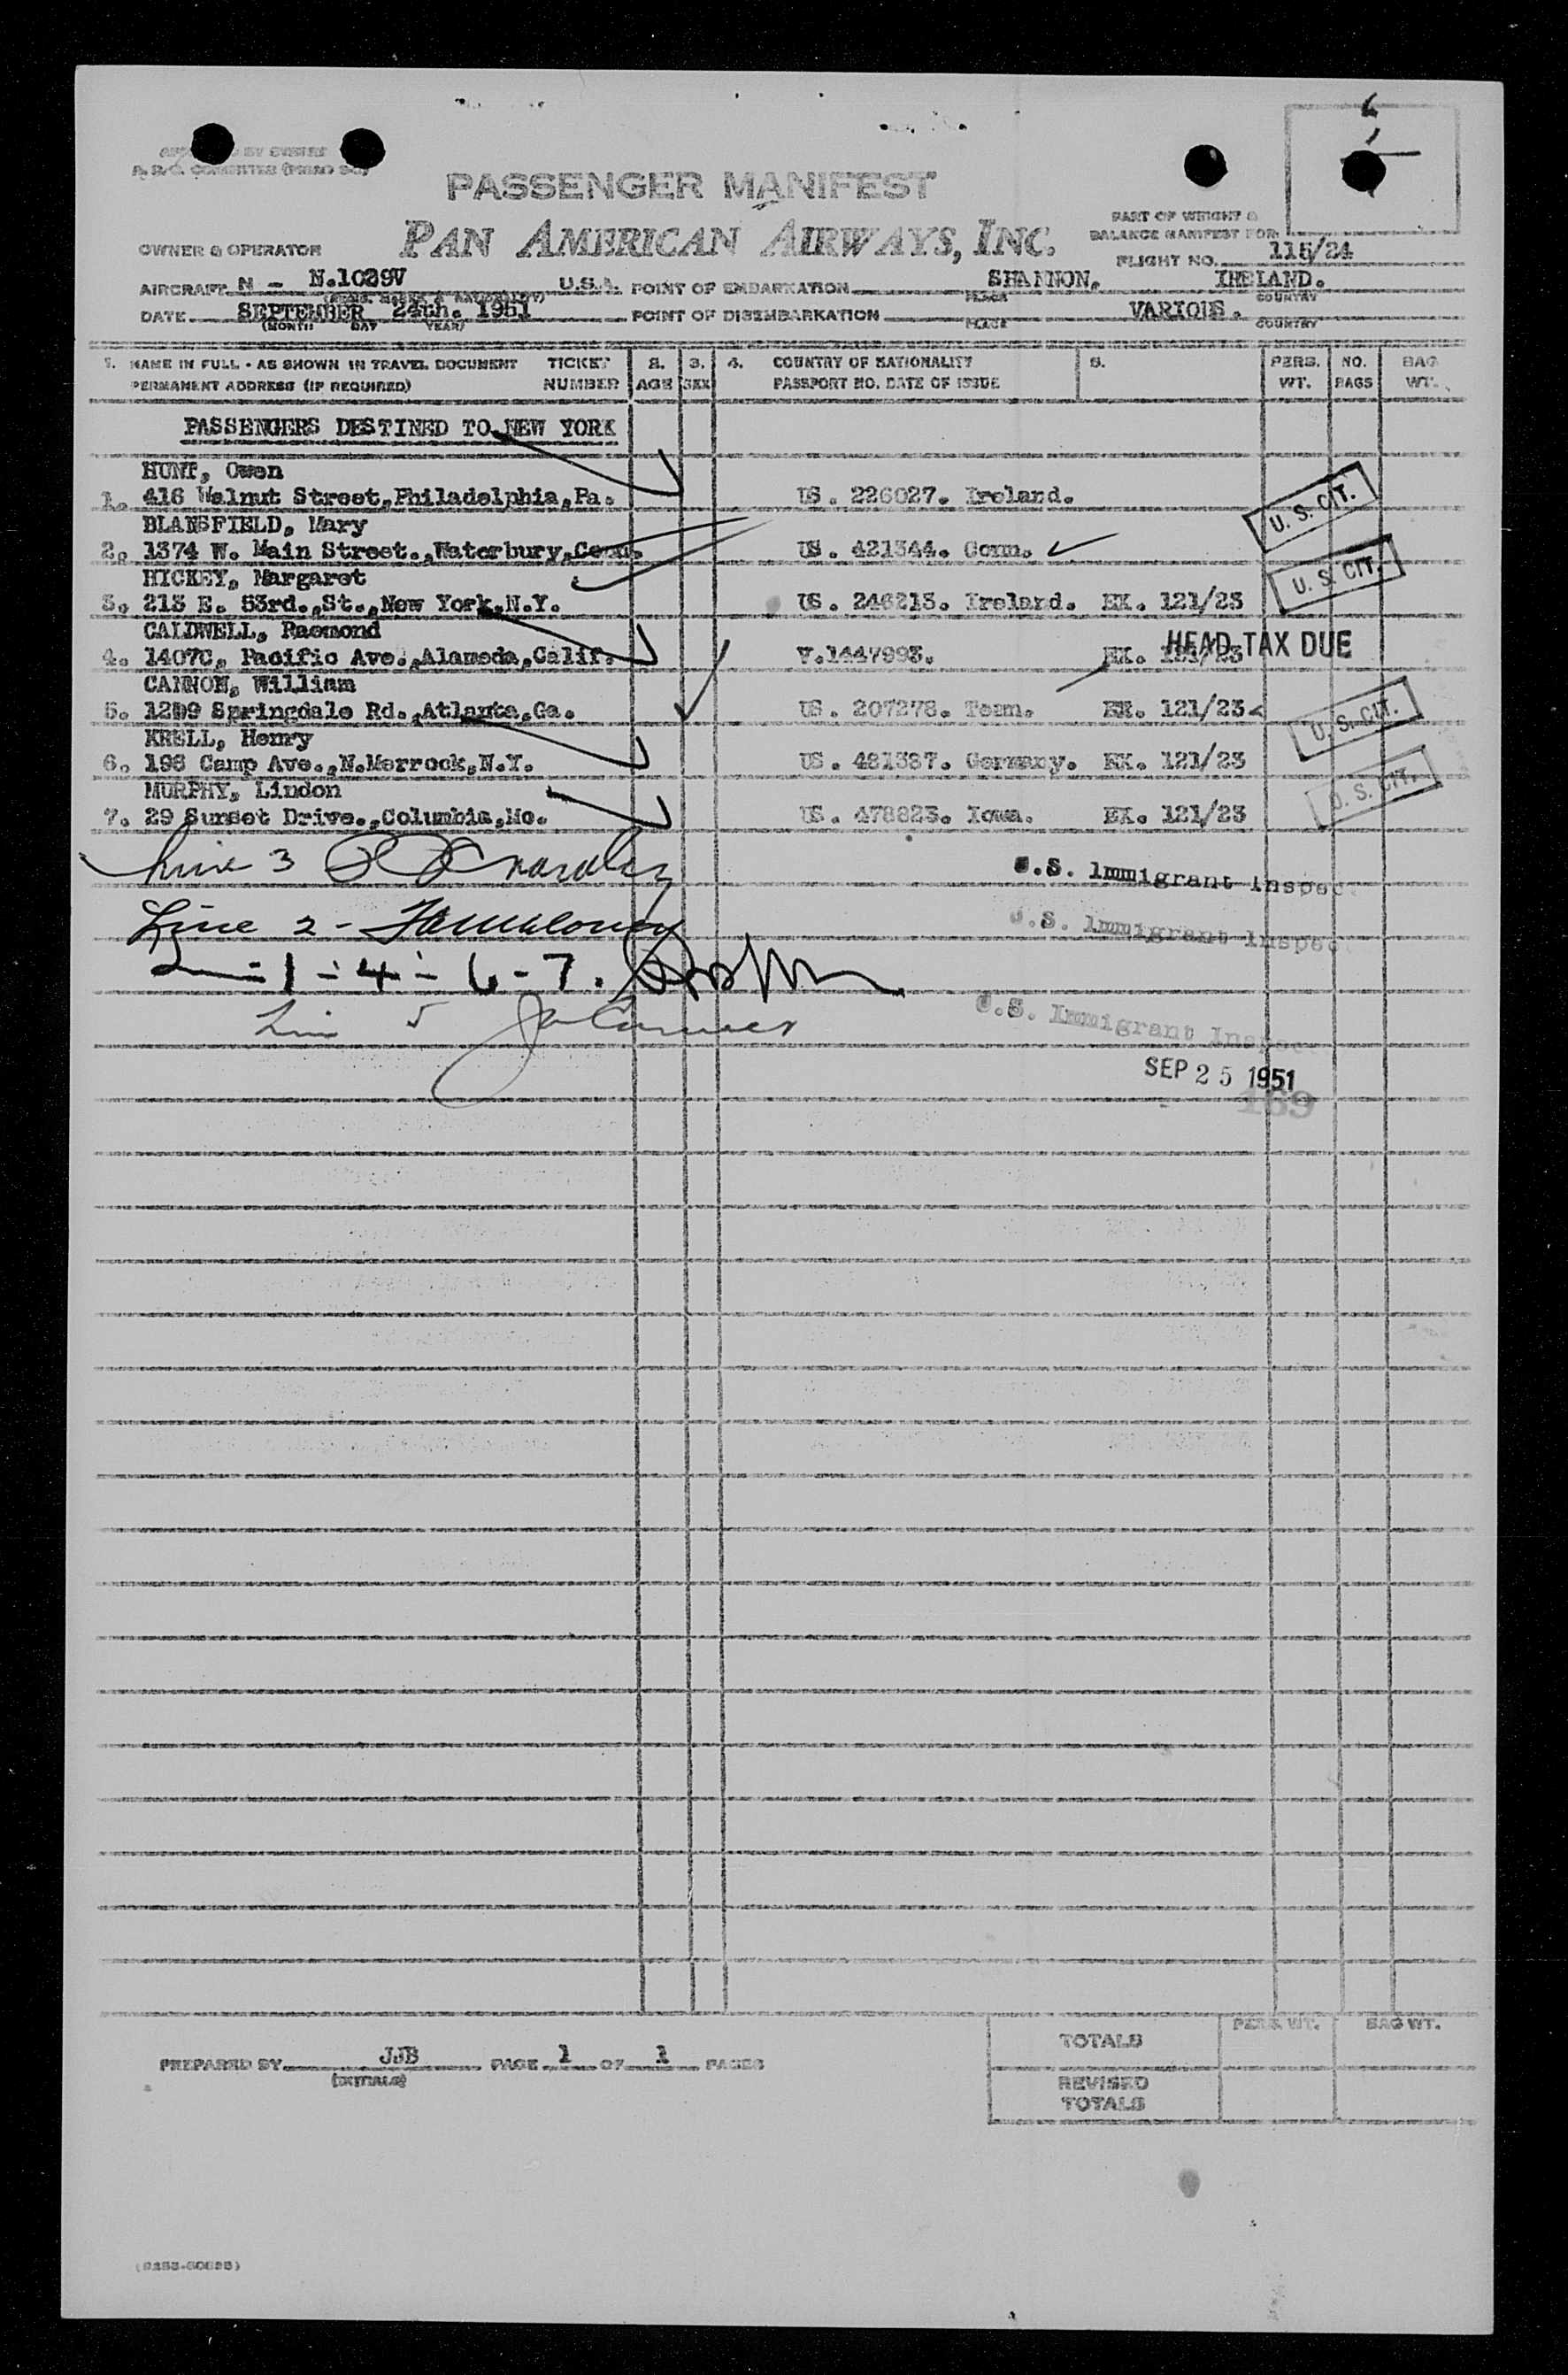 PASSENGER MANIFEST
PAN AMERICAN AIRWAYS, INC.
PART OF WEIGHT &
BALANCE MANIFEST FOR
OWNER & OPERATOR
FLIGHT NO. 115/24
AIRCRAFT N - N.1039V U.S.A. POINT OF EMBARKATION SHANNON, IRELAND.
PLACE COUNTRY
DATE SEPTEMBER 24th. 1951 POINT OF DISEMBARKATION VARIOUS.
(MONTH DAY YEAR) PLACE COUNTRY
1. NAME IN FULL - AS SHOWN IN TRAVEL DOCUMENT TICKET 2. 3. 4. COUNTRY OF NATIONALITY 5. PERS. NO. BAG
PERMANENT ADDRESS (IF REQUIRED) NUMBER AGE SEX PASSPORT NO. DATE OF ISSUE WT. BAGS WT.
PASSENGERS DESTINED TO NEW YORK
HUNT, Owen
1. 416 Walnut Street,Philadelphia,Pa. US. 226027. Ireland. U. S. CIT.
BLANSFIELD, Mary
2. 1374 W. Main Street.,Waterbury,Conn. US. 421344. Conn. U. S. CIT.
HICKEY, Margaret
3. 213 E. 53rd.,St.,New York,N.Y. US. 246213. Ireland. EX. 121/23
CALDWELL, Raemond HEAD TAX DUE
4. 1407C, Pacific Ave.,Alameda,Calif. V.1447993. EX. 121/23
CANNON, William
5. 1299 Springdale Rd.,Atlanta,Ga. US. 207278. Tenn. EX. 121/23 U. S. CIT.
KRELL, Henry
6. 198 Camp Ave.,N.Merrock,N.Y. US. 481387. Germany. EX. 121/23 U. S. CIT.
MURPHY, Lindon
7. 29 Sunset Drive.,Columbia,Mo. US. 478823. Iowa. EX. 121/23
Line 3
U.S. Immigrant Inspec
Line 2 -
U.S. Immigrant Inspec
1 - 4 - 6 - 7.
Line 5
U.S. Immigrant Inspec
SEP 25 1951
169
TOTALS PERS. WT. BAG WT.
PREPARED BY JJB PAGE 1 OF 1 PAGES
(INITIALS)
REVISED
TOTALS